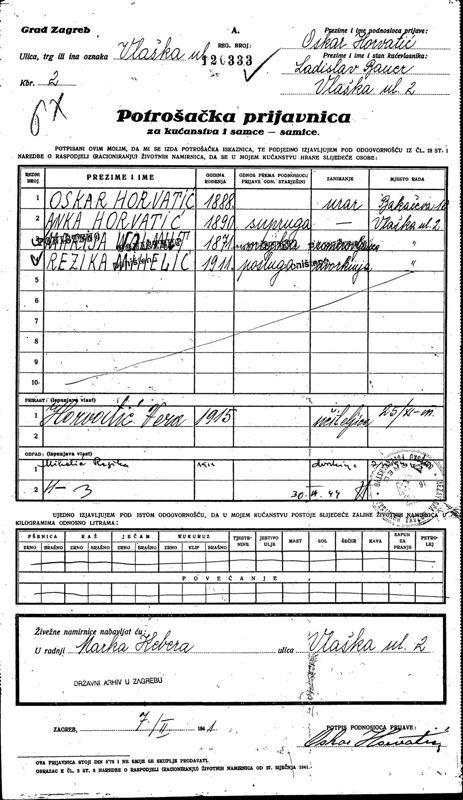 Grad Zagreb
A.
Prezime i ime podnosioca prijave:
Oskar Horvatić
Ulica, trg ili ina oznaka Vlaška ul. REG. BROJ: 120333
Prezime i ime i stan kućevlasnika:
Ladislav Bauer
Vlaška ul. 2
Kbr. 2
Potrošačka prijavnica
za kućanstva i samce — samice.
POTPISANI OVIM MOLIM, DA MI SE IZDA POTROŠAČKA ISKAZNICA, TE PODJEDNO IZJAVLJUJEM POD ODGOVORNOŠĆU IZ ČL. 18 ST. 1
NAREDBE O RASPODJELI (RACIONIRANJU) ŽIVOTNIH NAMIRNICA, DA SE U MOJEM KUĆANSTVU HRANE SLIJEDEĆE OSOBE:
REDNI BROJ PREZIME I IME GODINA ROĐENJA ODNOS PREMA PODNOSIOCU PRIJAVE ODN. STARJEŠINI ZANIMANJE MJESTO RADA
1 OSKAR HORVATIĆ 1888. urar
2 ANKA HORVATIĆ 1890 supruga — Vlaška ul. 2
1871. "
REZIKA 1911. posluga "
5
6
7
8
9
10
PRIRAST: (ispunjava vlast)
1 Horvatić Vera 1915 učiteljica 25/XI
2
OTPAD: (ispunjava vlast)
1
2
UJEDNO IZJAVLJUJEM POD ISTOM ODGOVORNOŠĆU, DA U MOJEM KUĆANSTVU POSTOJE SLIJEDEĆE ZALIHE ŽIVOTNIH NAMIRNICA U
KILOGRAMIMA ODNOSNO LITRAMA:
PŠENICA RAŽ JEČAM KUKURUZ TJESTENINE JESTIVO ULJE MAST SOL ŠEĆER KAVA SAPUN ZA PRANJE PETROLEJ
ZRNO BRAŠNO ZRNO BRAŠNO ZRNO BRAŠNO ZRNO KLIP BRAŠNO
POVEĆANJE
Živežne namirnice nabavljat ću:
U radnji Marka Hebera ulica Vlaška ul. 2
DRŽAVNI ARHIV U ZAGREBU
ZAGREB, 7/II 1941
POTPIS PODNOSIOCA PRIJAVE:
Oskar Horvatić
OVA PRIJAVNICA STOJI DIN 0'75 I NE SMIJE SE SKUPLJE PRODAVATI.
OBRAZAC K ČL. 2 ST. 2 NAREDBE O RASPODJELI (RACIONIRANJU) ŽIVOTNIH NAMIRNICA OD 27. SIJEČNJA 1941.